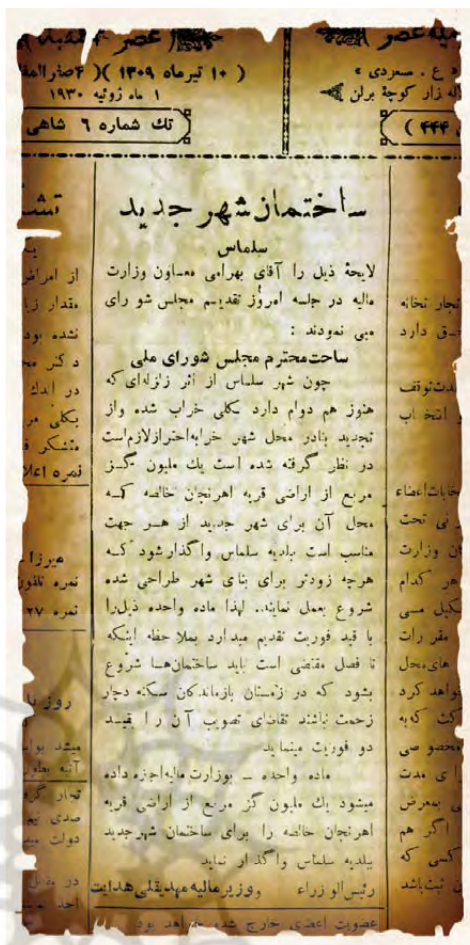 ( ۱۰ تیرماه ۱۳۰۹ )
۱ ماه ژوئیه ۱۹۳۰
ع . مسعردی »
لاله زار کوچهٔ برلن
تك شماره ۶ شاهی
ساختمان شهر جدید
سلماس
لایحهٔ ذیل را آقای بهرامی معاون وزارت
مالیه در جلسه امروز تقدیم مجلس شو رای
می نمودند :
ساحت محترم مجلس شورای ملی
چون شهر سلماس از اثر زلزله‌ای که
هنوز هم دوام دارد بکلی خراب شده واز
تجدید بنادر محل شهر خرابه احتراز لازم است
در نظر گرفته شده است يك ملیون گز
مربع از اراضی قریه اهرنجان خالصه که
محل آن برای شهر جدید از هر جهت
مناسب است ببلدیه سلماس واگذار شود که
هرچه زودتر برای بنای شهر طراحی شده
شروع بعمل نمایند. لهذا ماده واحده ذیل را
با قید فوریت تقدیم میدارد بملاحظه اینکه
تا فصل مقتضی است باید ساختمان‌ها شروع
بشود که در زمستان بازماندکان سکنه دچار
زحمت نباشند تقاضای تصویب آن را بقید
دو فوریت مینماید
ماده واحده ــ بوزارت مالیه اجازه داده
میشود يك ملیون گز مربع از اراضی قریه
اهرنجان خالصه را برای ساختمان شهر جدید
ببلدیه سلماس واگذار نماید
رئیس‌الوزراء وزیر مالیه مهدیقلی هدایت
عضویت اعضای خارج شده خواهد بود
از امراض
مقدار
نشده بود
دکتر
بکلی
متشکر
نمره
میرزا
نمره
نمره
روز
دولت
تجار
دارد
انتخاب
تحت
وزارت
هر کدام
مقررات
های محل
خواهد کرد
مدت
بمعرض
اگر هم
کسی که